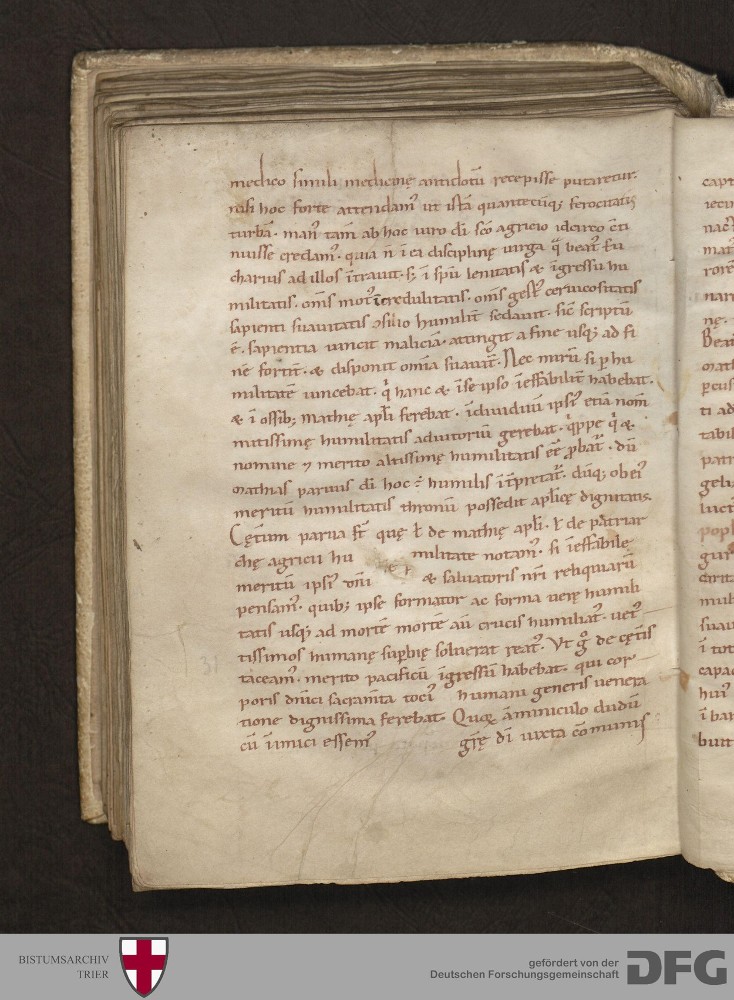 medico simili medicinę antidotū recepisse putaretur.
nisi hoc forte attendam᷒ ut istā quantecūq; ferocitatis
turbā. man᷒ tam̄ ab hoc uiro dī scō agricio idcirco
nuisse credam᷒. quia n̄ ī ei disciplinę uirga beat᷒ Eu
charius ad illos ītrauit. s; ī spū lenitatis & īgressu hu
militatis. om̄s mot᷒ īcredulitatis. om̄s ceruicositatis
sapienti suauitatis ↄsilio humilit̄ sedauit. sic̄ scriptū
ē. sapientia uincit maliciā. attingit a fine usq; ad fi
nē fortit̄. & disponit om̄ia suauit̄. Nec mirū si p hu
militatē uincebat. hanc & īse ipso īeffabilit̄ habebat.
& ī ossib; mathię apl̄i ferebat. īdiuiduū ipsi᷒ etiā nom̄
mitissimę humilitatis adiutoriū gerebat. &
nomine ⁊ merito altissimę humilitatis. dū
mathias paruus dī hoc ÷ humilis īt̄pretat᷒. dūq; ob ei᷒
meritū humilitatis thronū possedit aplicę dignitatis.
Cęt̄um parua st̄ quę ł de mathię apl̄i. ł de patriar
chę agricii hu militate notam᷒. si īeffabile
meritū ipsi᷒ & saluatoris nr̄i reliquiarū
pensam᷒. quib; ipse formator ac forma uerę humili
tatis usq; ad mortē mortē aū crucis humiliat᷒. uet᷒
tissimos humanę supbię soluerat reat᷒. Vt de cęt̄is
taceam᷒. merito pacificū īgressū habebat. qui cor
poris dn̄ici sacram̄ta toci᷒ humani generis uenera
tione dignissima ferebat. Quoꝝ āminiculo dudū
cū īimici essem᷒ dī iuxta cōmunis
31
BISTUMSARCHIV
TRIER
gefördert von der
Deutschen Forschungsgemeinschaft
DFG